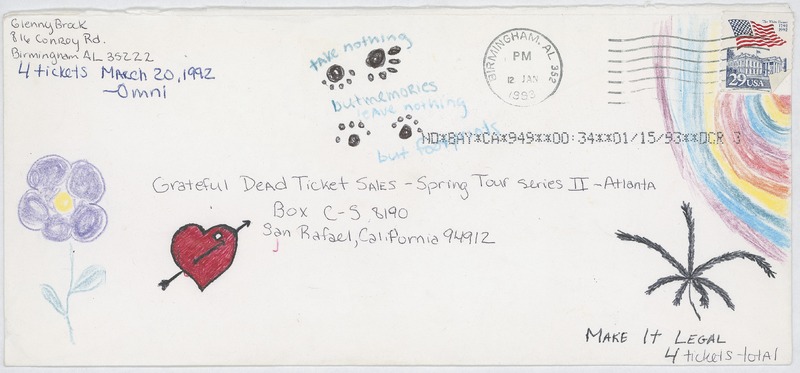 Glenny Brock
816 Conroy Rd.
Birmingham AL 35222
4 tickets March 20, 1992
-Omni
take nothing
but memories
leave nothing
but footprints
BIRMINGHAM, AL 352
PM
12 JAN
1993
29 USA
NO*BAY*CA*949**00:34**01/15/93**OCR 3
Grateful Dead Ticket Sales - Spring Tour series II - Atlanta
Box C-S 8190
San Rafael, California 94912
Make It Legal
4 tickets total